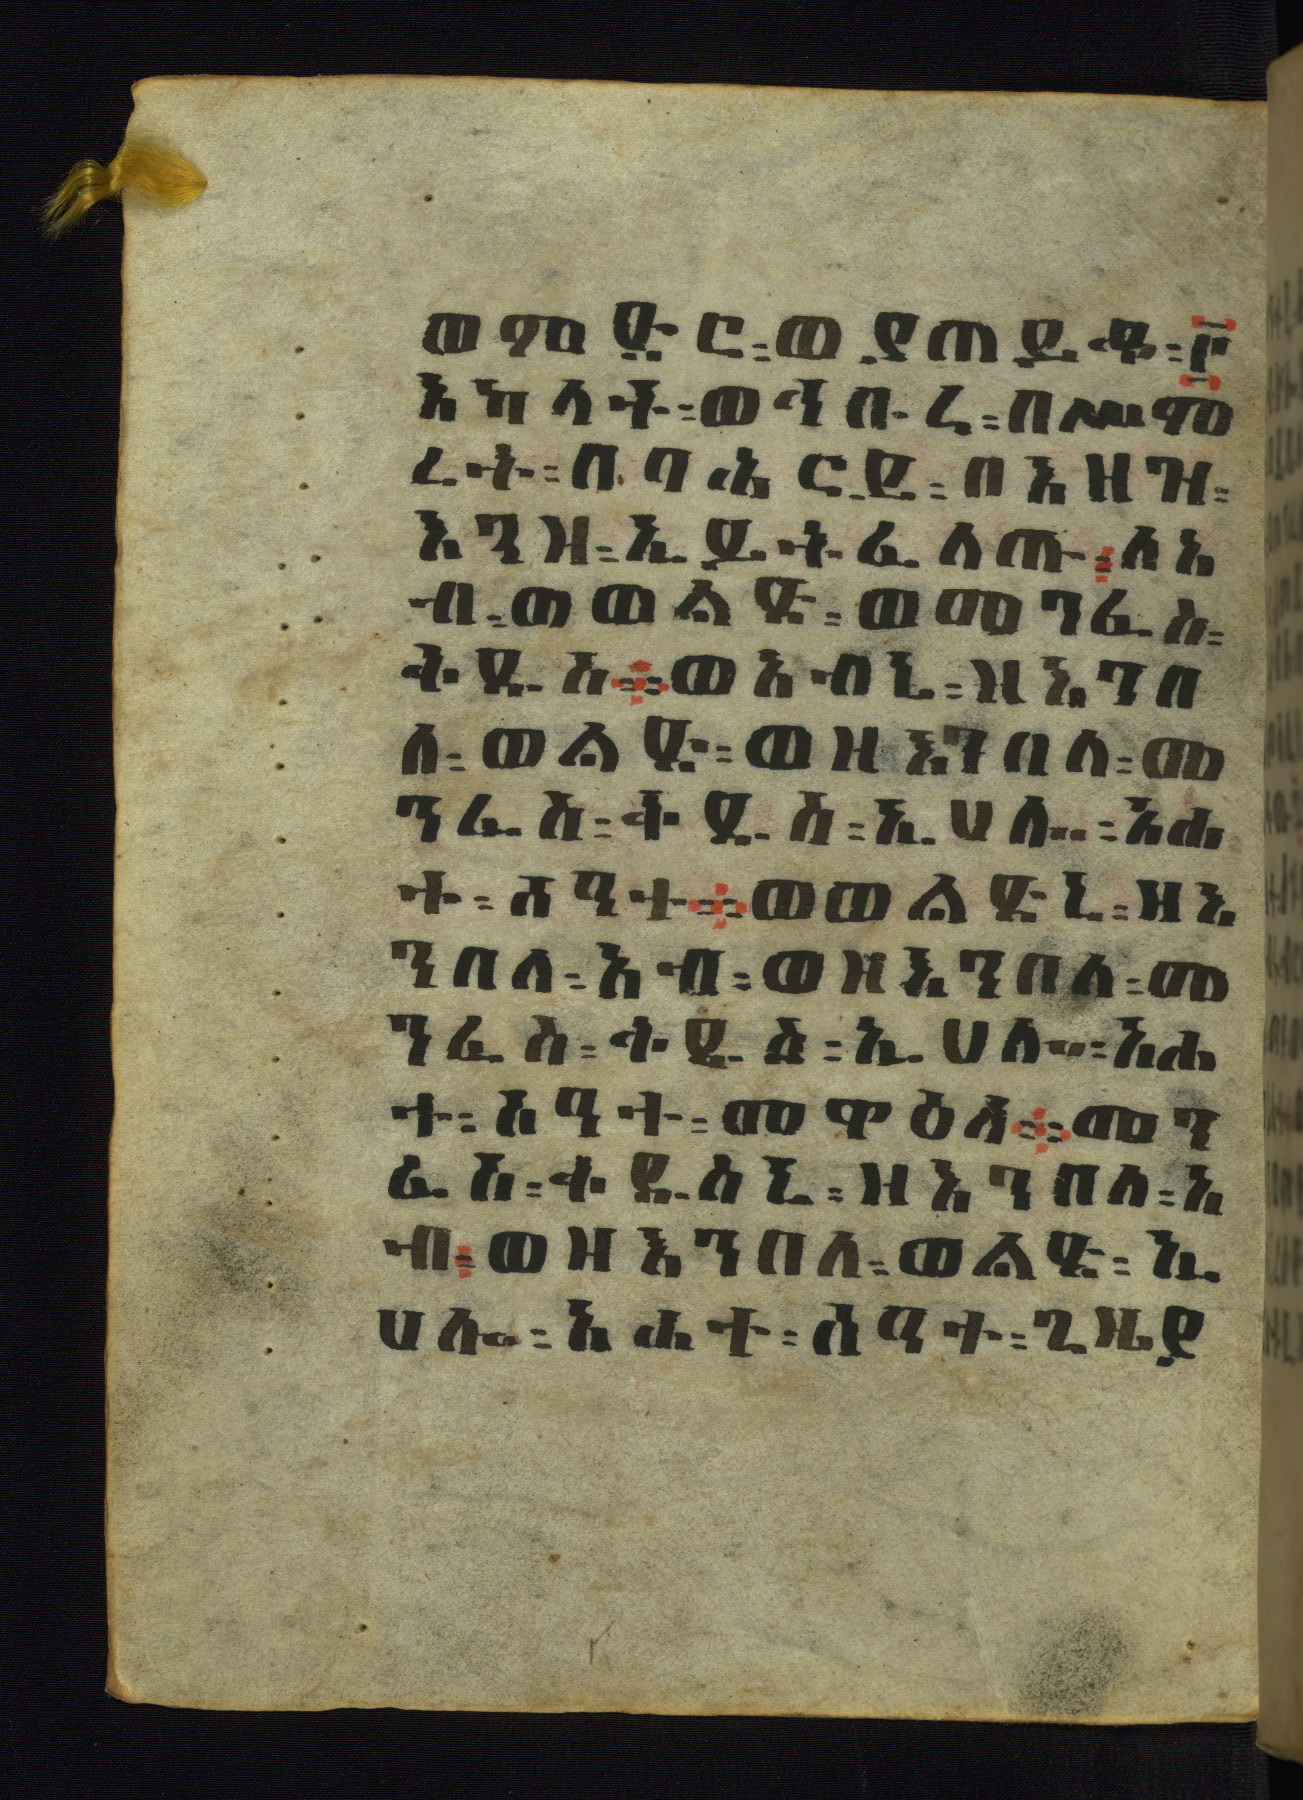 ወምድር፡ወያጠይቁ፡፫
እኻላት፡ወኅቡረ፡በሥም
ረት፡በባሕርይ፡በእዘዝ፡
እንዝ፡ኢይትፌለጡ፡ለአ
ብ፡ወወልድ፡ወመንፈስ፡
ቅዱስ፡ወአብኒ፡ዝእንበ
ለ፡ወልድ፡ወዘእንበለ፡መ
ንፈስ፡ቅዱስ፡ኢሀሎ፡አሐ
ተ፡ሰዓተ፡ወወልድኒ፡ዘእ
ንበለ፡አብ፡ወዘእንበለ፡መ
ንፈስ፡ቅዱስ፡ኢሀሎ፡አሐ
ተ፡ሰዓተ፡መዋዕለ፡መን
ፈስ፡ቅዱስኒ፡ዘእንበለ፡አ
ብ፡ወዘእንበለ፡ወልድ፡ኢ
ሀሎ፡አሐተ፡ሰዓተ፡ጊዜያ